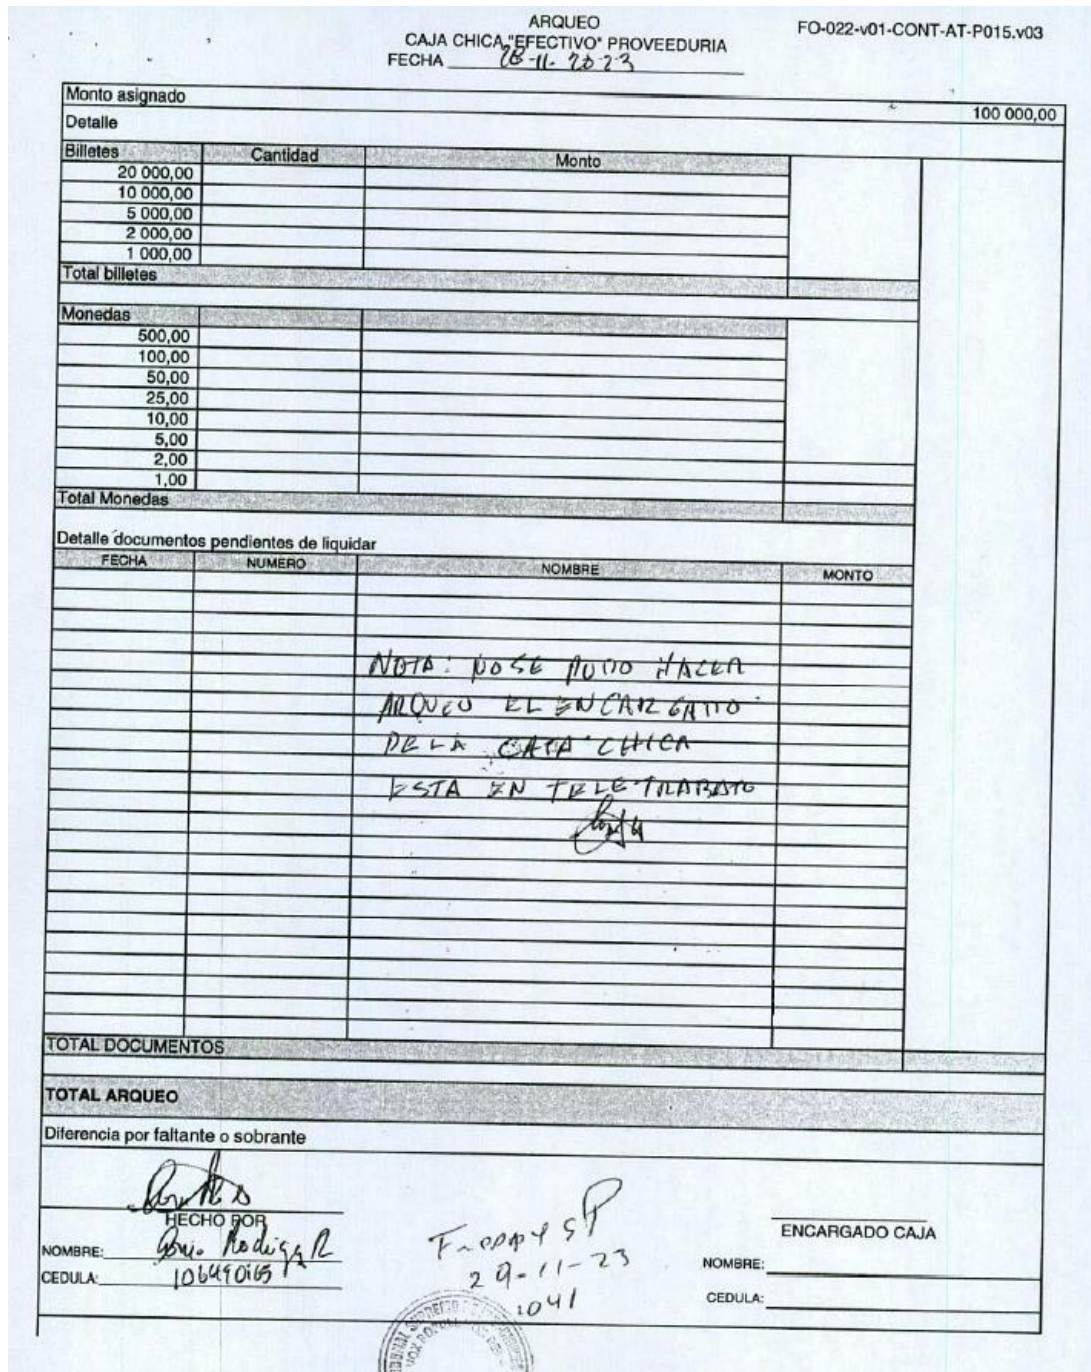 ARQUEO
FO-022-v01-CONT-AT-P015.v03
CAJA CHICA "EFECTIVO" PROVEEDURIA
FECHA 28-11-2023
Monto asignado 100 000,00
Detalle
Billetes Cantidad Monto
20 000,00
10 000,00
5 000,00
2 000,00
1 000,00
Total billetes
Monedas
500,00
100,00
50,00
25,00
10,00
5,00
2,00
1,00
Total Monedas
Detalle documentos pendientes de liquidar
FECHA NUMERO NOMBRE MONTO
NOTA: NO SE PUDO HACER
ARQUEO EL ENCARGADO
DE LA CAJA CHICA
ESTA EN TELETRABAJO
TOTAL DOCUMENTOS
TOTAL ARQUEO
Diferencia por faltante o sobrante
HECHO POR
NOMBRE:
CEDULA:
29-11-23
1041
ENCARGADO CAJA
NOMBRE:
CEDULA: